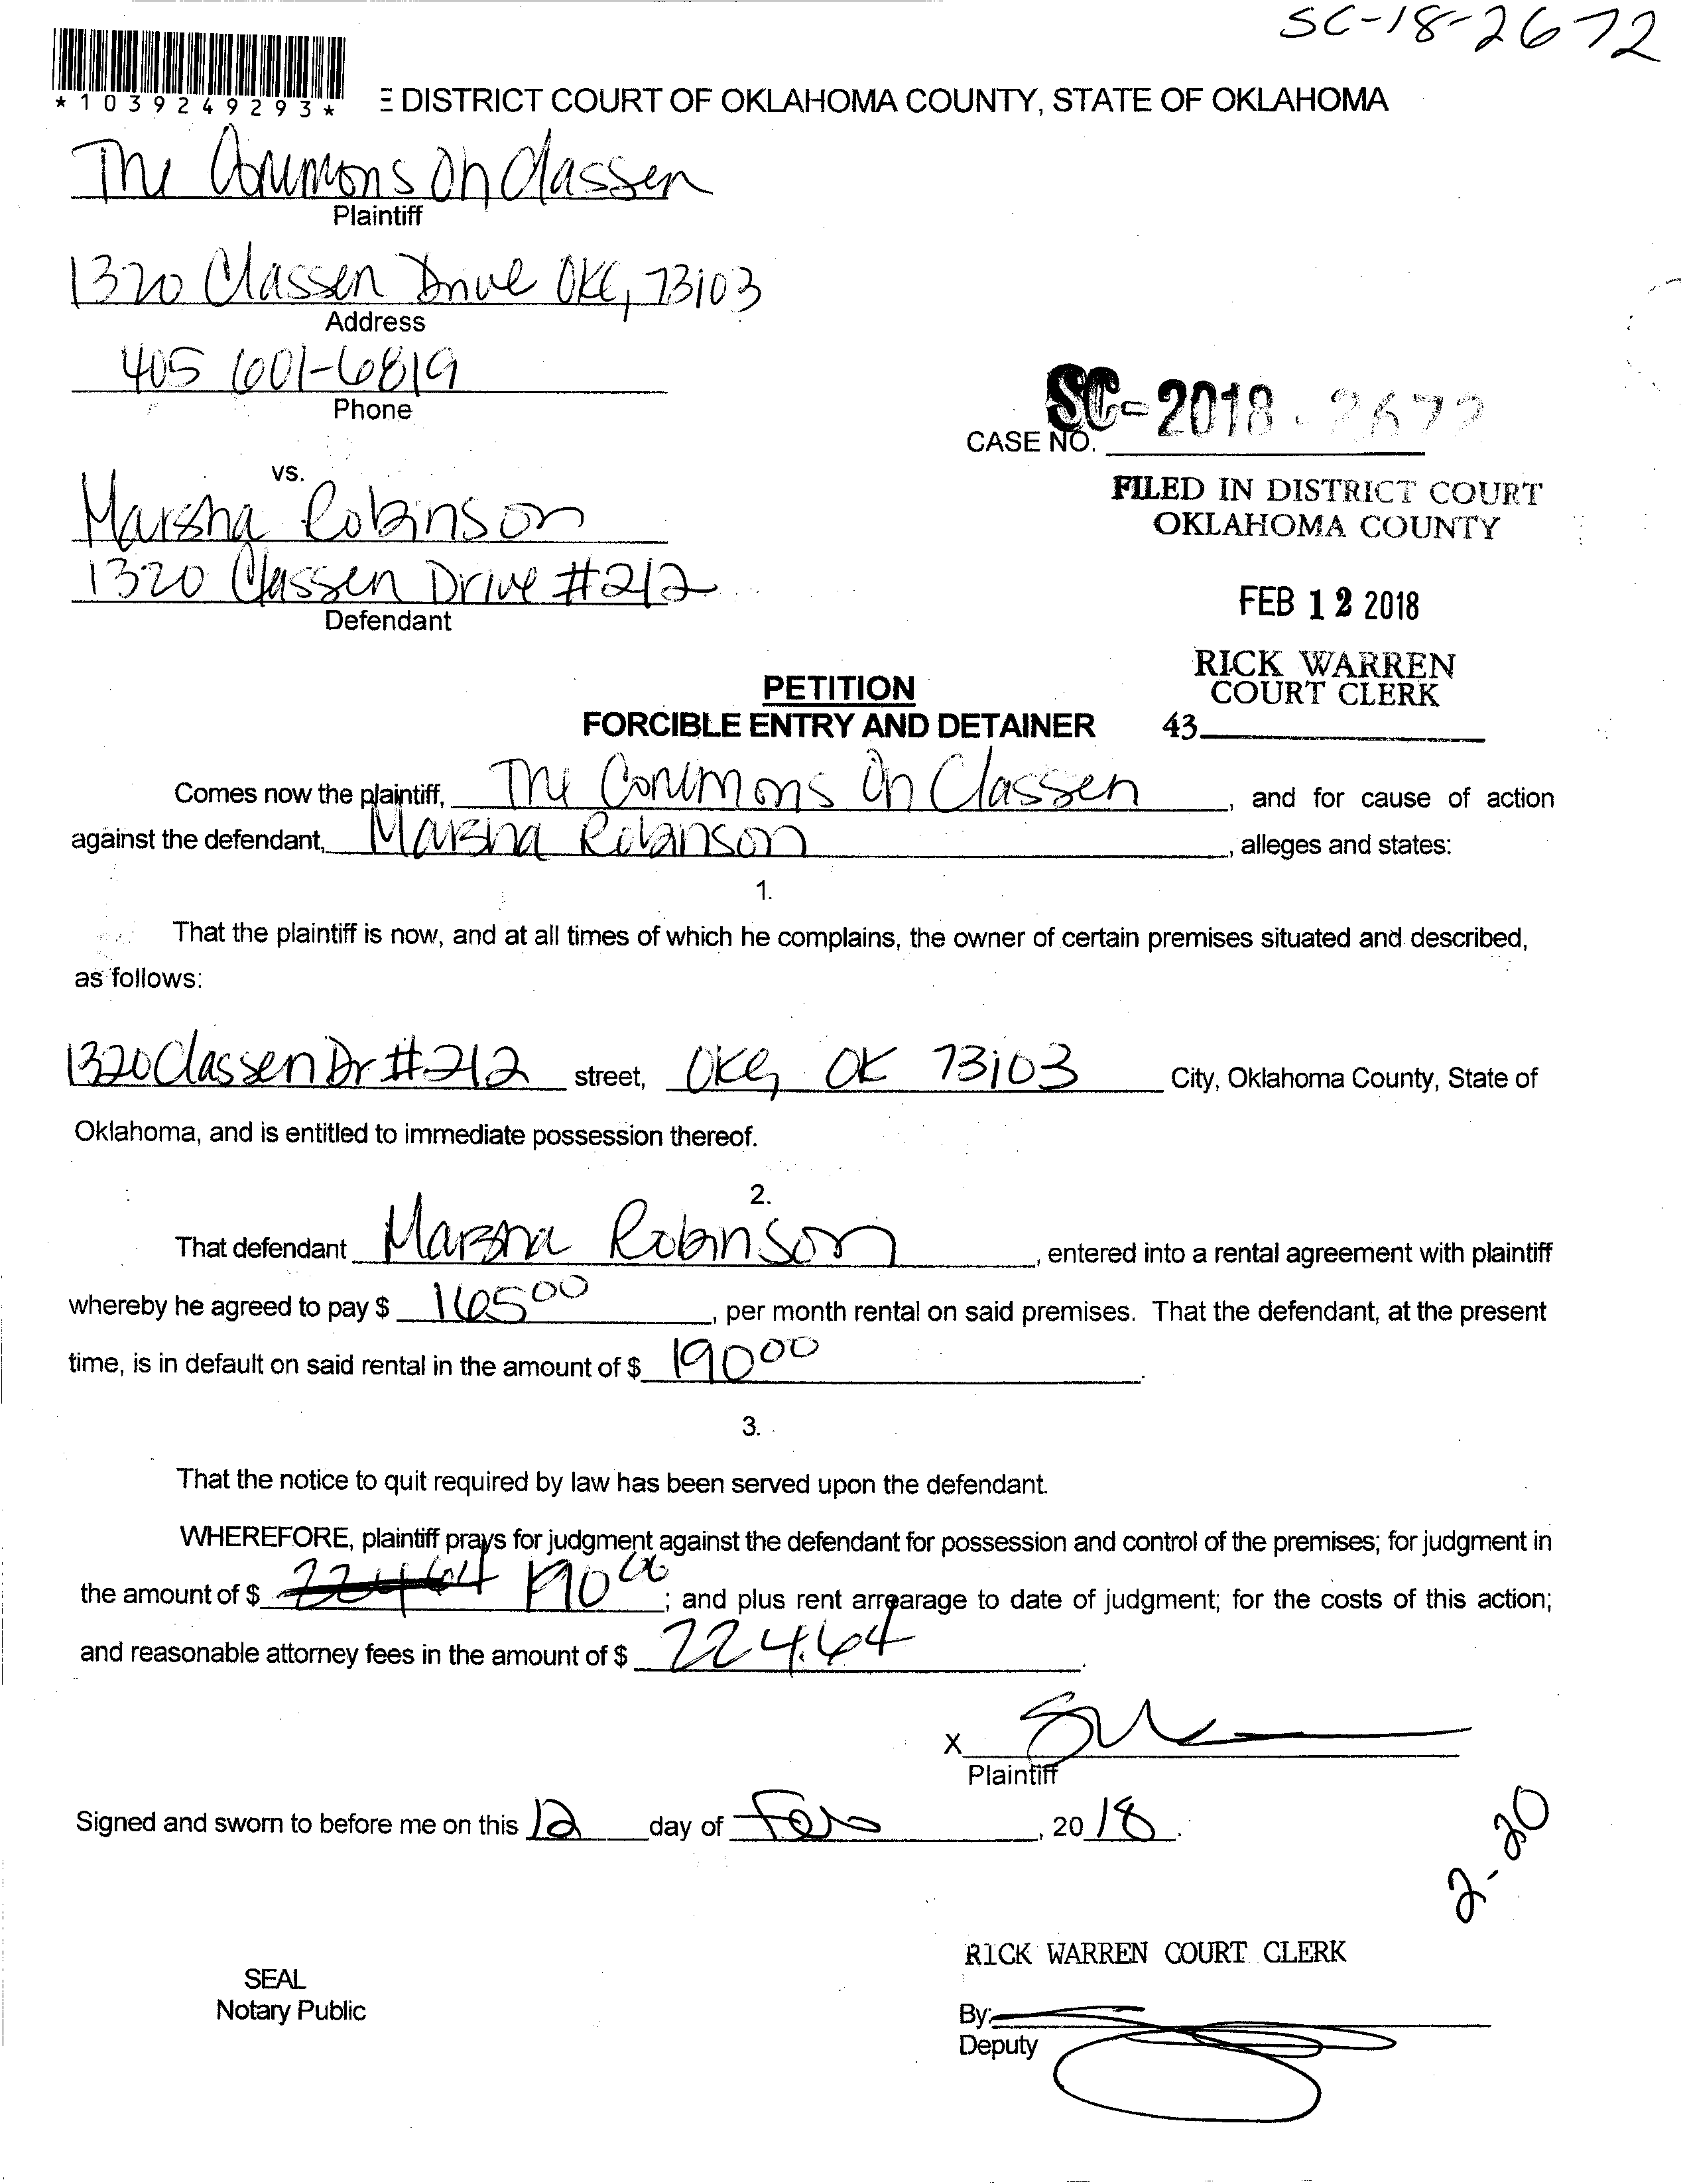 SC-18-2672
*1039249293*
E DISTRICT COURT OF OKLAHOMA COUNTY, STATE OF OKLAHOMA
The Commons On Classen
Plaintiff
1320 Classen Drive OKC, 73103
Address
405 601-6819
Phone
SC-2018-2672
CASE NO.
vs.
FILED IN DISTRICT COURT
OKLAHOMA COUNTY
Marsha Robinson
1320 Classen Drive #212
Defendant
FEB 12 2018
RICK WARREN
COURT CLERK
43
PETITION
FORCIBLE ENTRY AND DETAINER
Comes now the plaintiff, The Commons On Classen, and for cause of action
against the defendant, Marsha Robinson, alleges and states:
1.
That the plaintiff is now, and at all times of which he complains, the owner of certain premises situated and described,
as follows:
1320 Classen Dr #212 street, OKC, OK 73103 City, Oklahoma County, State of
Oklahoma, and is entitled to immediate possession thereof.
2.
That defendant Marsha Robinson, entered into a rental agreement with plaintiff
whereby he agreed to pay $ 165 00, per month rental on said premises. That the defendant, at the present
time, is in default on said rental in the amount of $ 190 00.
3.
That the notice to quit required by law has been served upon the defendant.
WHEREFORE, plaintiff prays for judgment against the defendant for possession and control of the premises; for judgment in
the amount of $ 224.64 190 00; and plus rent arrearage to date of judgment; for the costs of this action;
and reasonable attorney fees in the amount of $ 224.64.
X
Plaintiff
Signed and sworn to before me on this 12 day of Feb, 2018.
2-20
RICK WARREN COURT CLERK
SEAL
Notary Public
By:
Deputy